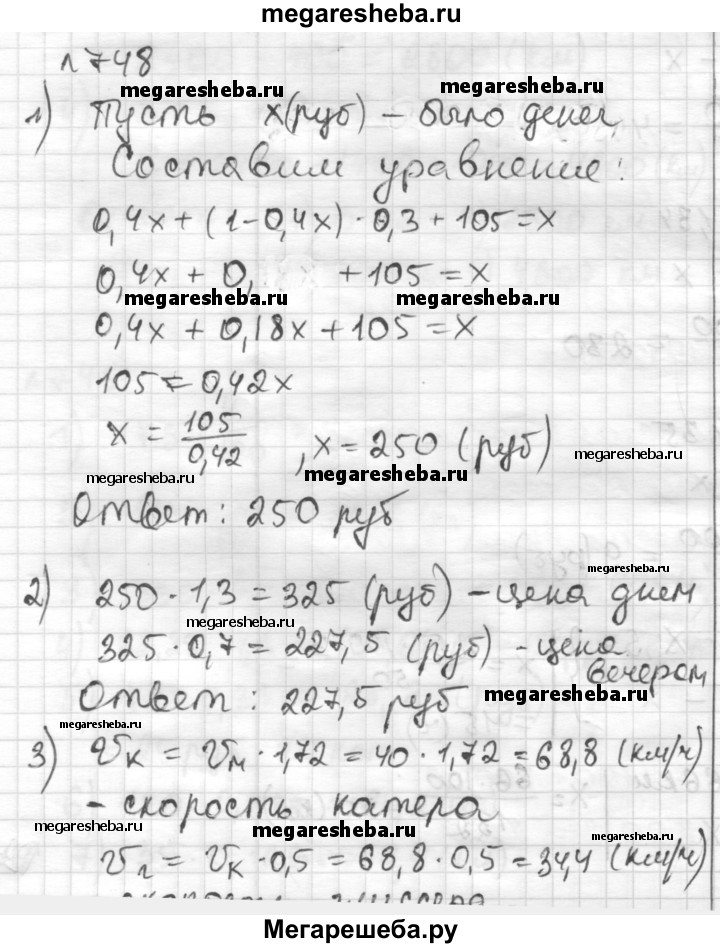 megaresheba.ru
№748
megaresheba.ru megaresheba.ru
1) Пусть x(руб) – было денег
Составим уравнение:
0,4x + (1-0,4x) · 0,3 + 105 = x
0,4x + 0, + 105 = x
megaresheba.ru megaresheba.ru
0,4x + 0,18x + 105 = x
105 = 0,42x
x = 105/0,42 , x = 250 (руб)
megaresheba.ru megaresheba.ru megaresheba.ru
Ответ: 250 руб
megaresheba.ru
2) 250 · 1,3 = 325 (руб) – цена днем
megaresheba.ru
325 · 0,7 = 227,5 (руб) – цена вечером
Ответ: 227,5 руб
megaresheba.ru
megaresheba.ru
3) Vк = Vм · 1,72 = 40 · 1,72 = 68,8 (км/ч)
– скорость катера
megaresheba.ru megaresheba.ru megaresheba.ru
Vл = Vк · 0,5 = 68,8 · 0,5 = 34,4 (км/ч)
Мегарешеба.ру